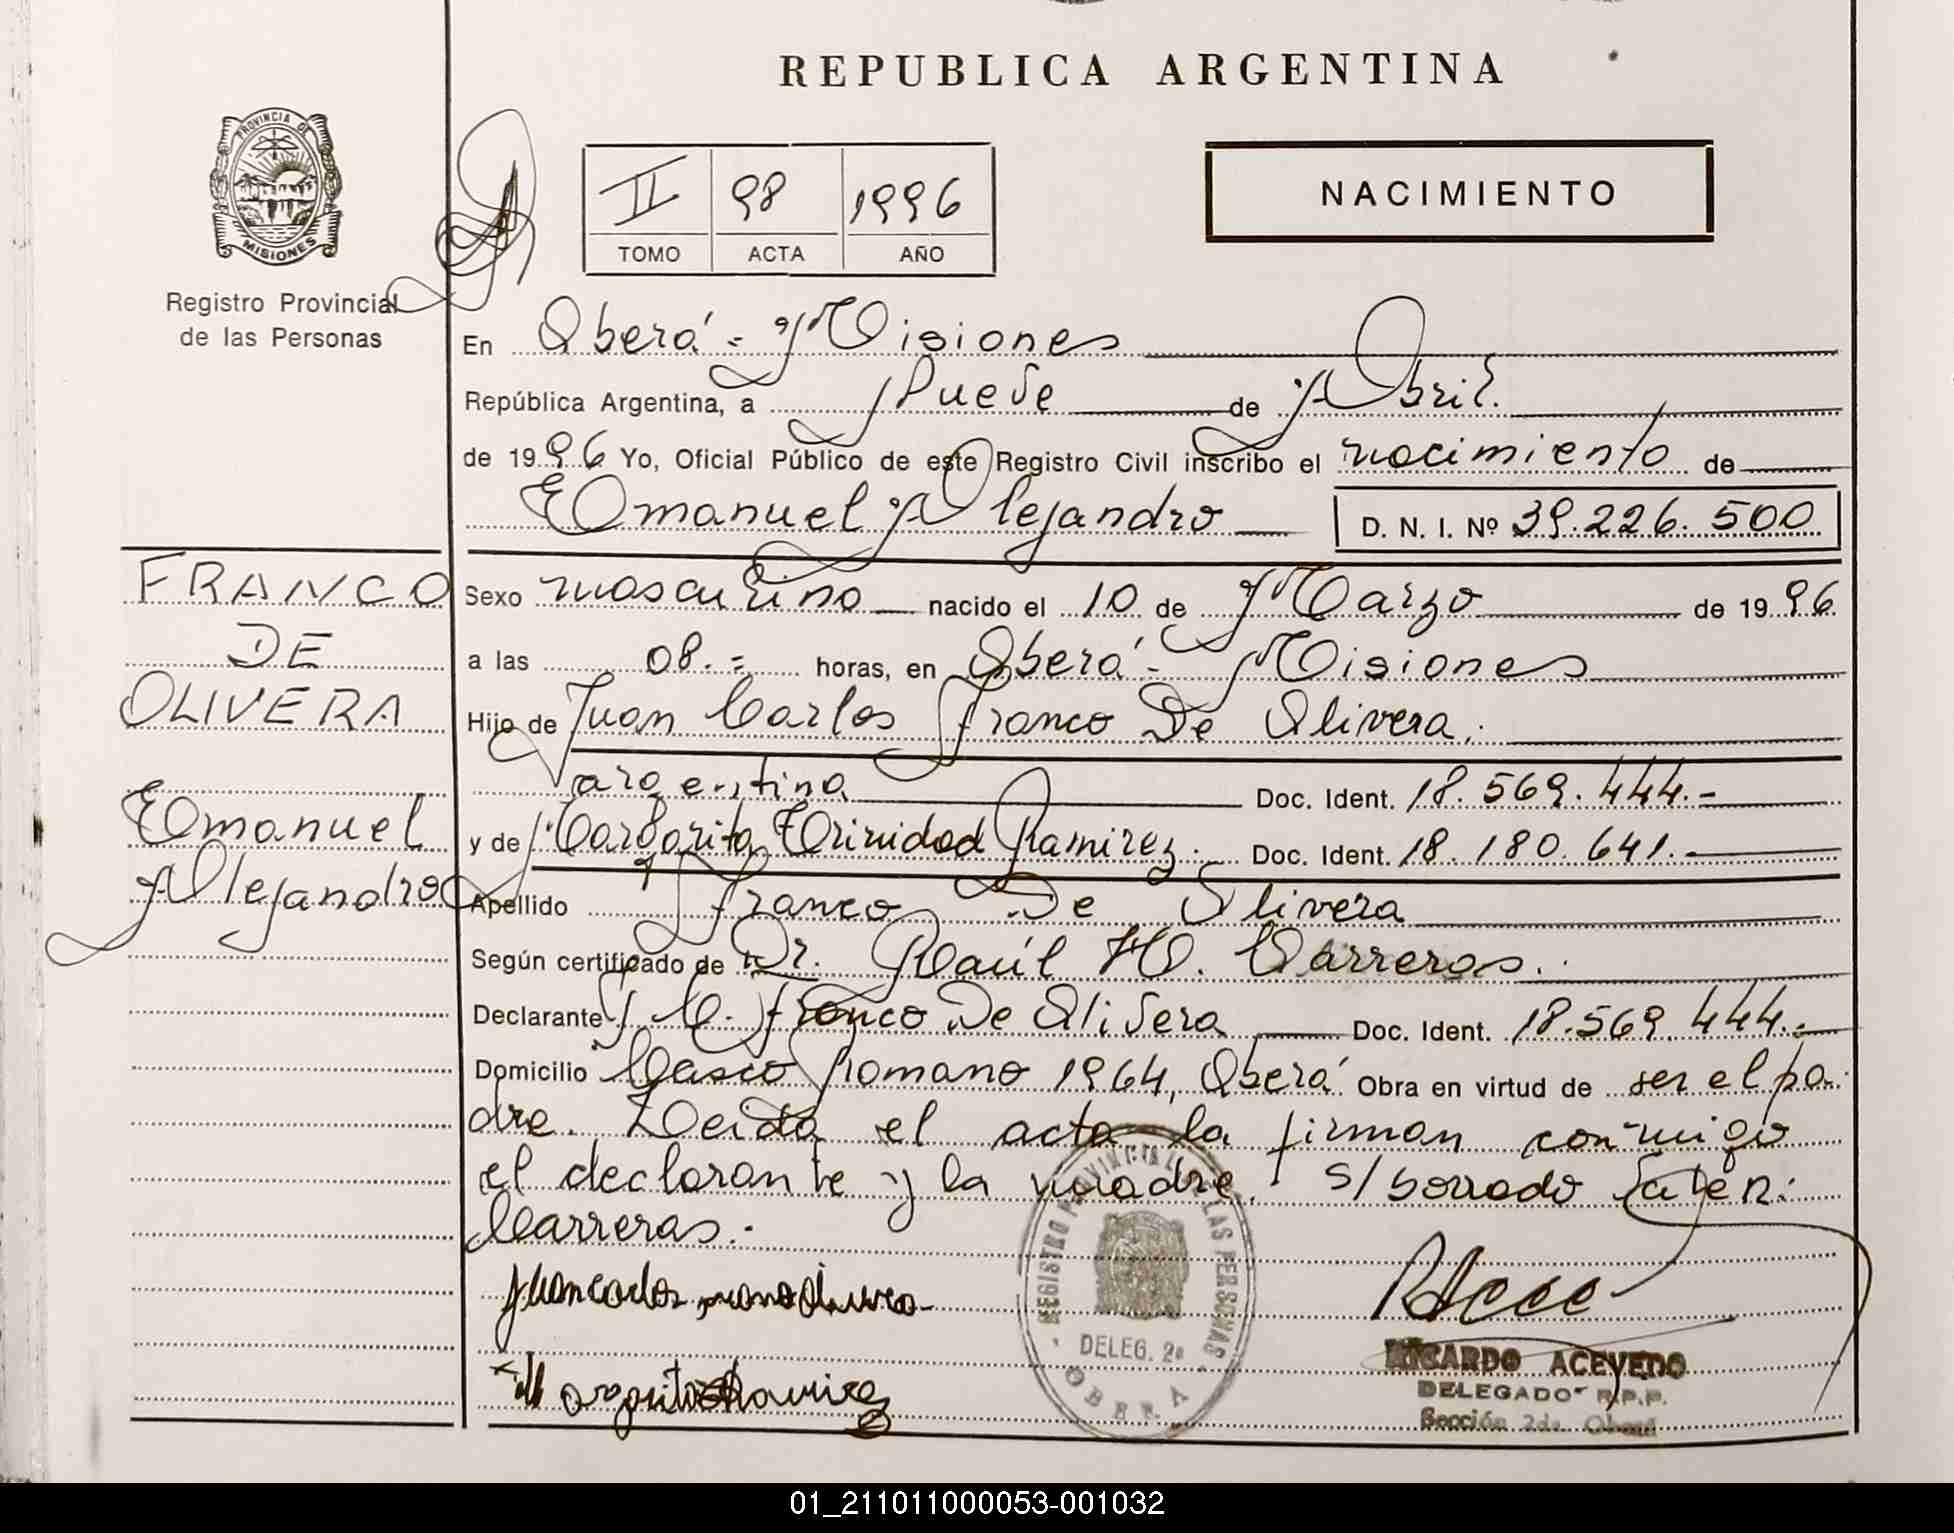 REPUBLICA ARGENTINA
PROVINCIA DE
MISIONES
Registro Provincial
de las Personas
II 98 1996
TOMO ACTA AÑO
NACIMIENTO
En Oberá - Misiones
República Argentina, a Nueve de Abril.
de 1996 Yo, Oficial Público de este Registro Civil inscribo el nacimiento de
Emanuel Alejandro D. N. I. Nº 39.226.500
FRANCO
DE
OLIVERA
Emanuel
Alejandro
Sexo masculino nacido el 10 de Marzo de 1996
a las 08.= horas, en Oberá - Misiones
Hijo de Juan Carlos Franco De Olivera.
argentina Doc. Ident. 18.569.444.-
y de Margarita Trinidad Ramirez. Doc. Ident. 18.180.641.-
Apellido Franco De Olivera
Según certificado de Dr. Raúl H. Carreras.
Declarante J. C. Franco De Olivera Doc. Ident. 18.569.444.-
Domicilio Casco Romano 1964, Oberá Obra en virtud de ser el pa-
dre. Leida el acta la firman conmigo
el declarante y la madre. S/borrado
Carreras.-
Juan Carlos Franco Olivera
Margarita Ramirez
REGISTRO PROVINCIAL DE LAS PERSONAS
DELEG. 2ª
OBERA
RICARDO ACEVEDO
DELEGADO R.P.P.
Sección 2da. Oberá
01_211011000053-001032